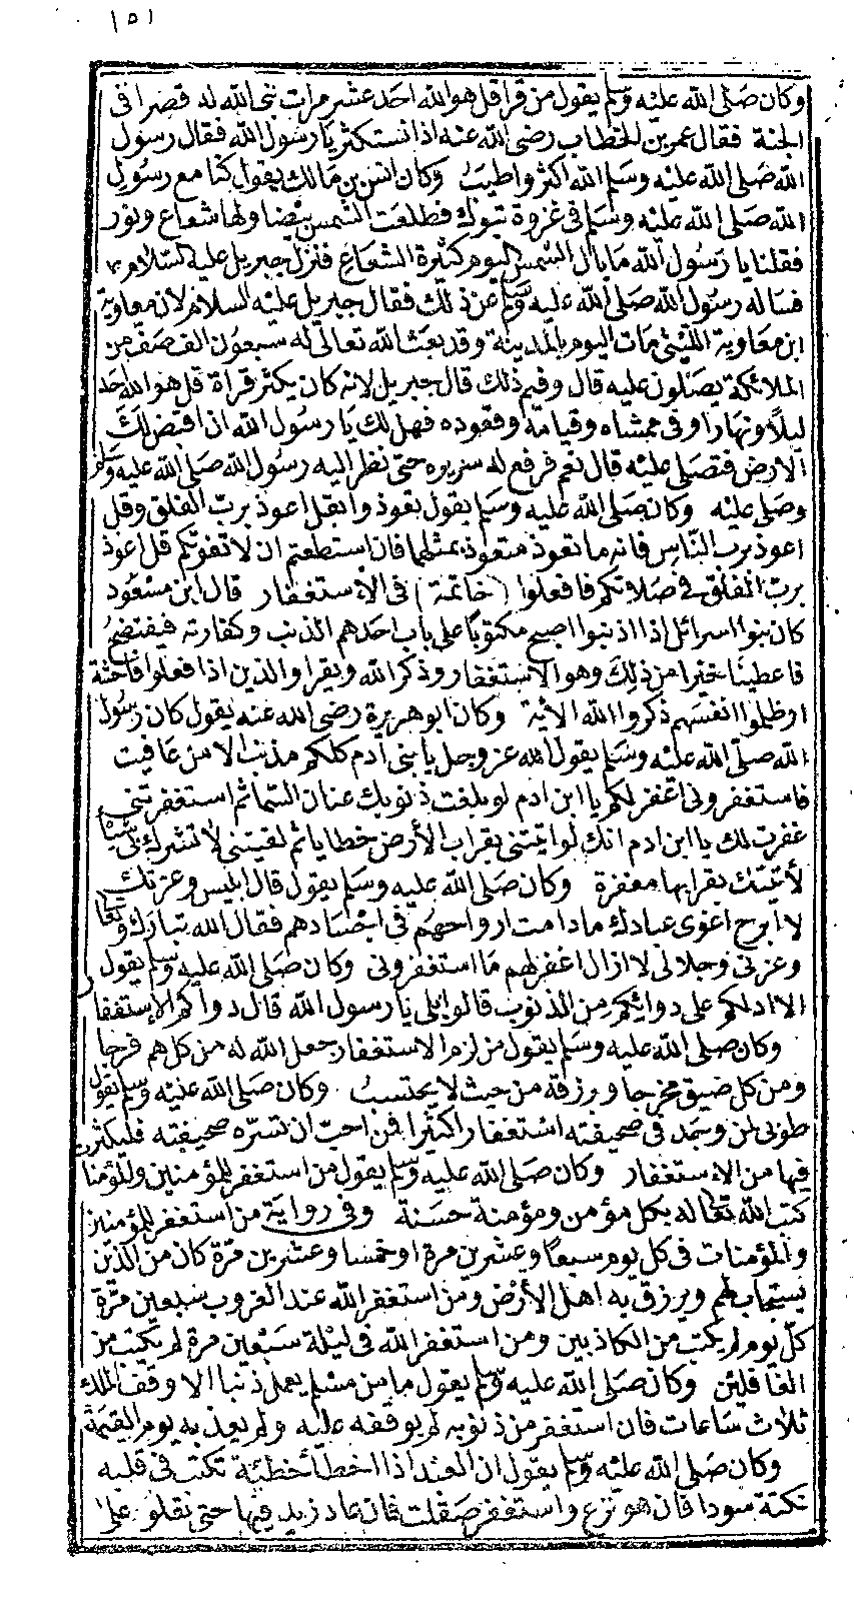 ١٥١
وكان صلى الله عليه وسلم يقول من قرا قل هو الله احد عشر مرات بنى الله له قصرا في
الجنة فقال عمر بن الخطاب رضى الله عنه اذا نستكثر يا رسول الله فقال رسول
الله صلى الله عليه وسلم الله اكثر واطيب وكان انس بن مالك يقول كنا مع رسول
الله صلى الله عليه وسلم فى غزوة تبوك فطلعت الشمس بيضا ولها شعاع ونور
فقلنا يا رسول الله ما بال الشمس اليوم كثيرة الشعاع فنزل جبريل عليه السلام
فساله رسول الله صلى الله عليه وسلم عن ذلك فقال جبريل عليه السلام لان معاوية
ابن معاوية الليثى مات اليوم بالمدينة وقد بعث الله تعالى له سبعون الف صف من
الملائكة يصلون عليه قال وفيم ذلك قال جبريل لانه كان يكثر قراة قل هو الله احد
ليلا ونهارا وفى ممشاه وقيامه وقعوده فهل لك يا رسول الله ان اقبض لك
الارض فتصلى عليه قال نعم فرفع له سريره حتى نظر اليه رسول الله صلى الله عليه وسلم
وصلى عليه وكان صلى الله عليه وسلم يقول تعوذ وا بقل اعوذ برب الفلق وقل
اعوذ برب الناس فانه ما تعوذ متعوذ بمثلهما فان استطعتم ان لا تفوتكم قل اعوذ
برب الفلق فى صلاتكم فافعلوا (خاتمة) فى الاستغفار قال ابن مسعود
كان بنوا اسرائل اذا اذنبوا اصبح مكتوبا على باب احدهم الذنب وكفارته فيفتضح
فاعطينا خيرا من ذلك وهو الاستغفار وذكر الله ويقرا والذين اذا فعلوا فاحشة
او ظلموا انفسهم ذكروا الله الاية وكان ابو هريرة رضى الله عنه يقول كان رسول
الله صلى الله عليه وسلم يقول الله عز وجل يا بنى ادم كلكم مذنب الا من عافيت
فاستغفرونى اغفر لكم يا ابن ادم لو بلغت ذنوبك عنان السما ثم استغفرتنى
غفرت لك يا ابن ادم انك لو اتيتنى بقراب الارض خطايا ثم لقيتنى لا تشرك بى شيا
لأتيتك بقرابها مغفرة وكان صلى الله عليه وسلم يقول قال ابليس وعزتك
لا ابرح اغوى عبادك ما دامت ارواحهم فى اجسادهم فقال الله تبارك وتعا
وعزتى وجلالى لا ازال اغفر لهم ما استغفرونى وكان صلى الله عليه وسلم يقول
الا ادلكم على دوائكم من الذنوب قالوا بلى يا رسول الله قال دواكم الاستغفار
وكان صلى الله عليه وسلم يقول من لزم الاستغفار جعل الله له من كل هم فرجا
ومن كل ضيق مخرجا ورزقه من حيث لا يحتسب وكان صلى الله عليه وسلم يقول
طوبى لمن وجد فى صحيفته استغفارا كثيرا فمن احب ان تسره صحيفته فليكثر
فيها من الاستغفار وكان صلى الله عليه وسلم يقول من استغفر للمؤمنين وللمؤمنا
كتب الله تعا له بكل مؤمن ومؤمنة حسنة وفى رواية من استغفر للمؤمنين
والمؤمنات فى كل يوم سبعا وعشرين مرة او خمسا وعشرين مرة كان من الذين
يستجاب لهم ويرزق به اهل الأرض ومن استغفر الله عند الغروب سبعين مرة
كل يوم لم يكتب من الكاذبين ومن استغفر الله فى ليلة سبعين مرة لم يكتب من
الغافلين وكان صلى الله عليه وسلم يقول ما من مسلم يعمل ذنبا الا وقف الملك
ثلاث ساعات فان استغفر من ذنوبه لم يوقفه عليه ولم يعذبه يوم القيمة
وكان صلى الله عليه وسلم يقول ان العبد اذا اخطا خطيئة تكتب فى قلبه
نكتة سودا فان هو نزع واستغفر صقلت فان عاد زيد فيها حتى تعلو على